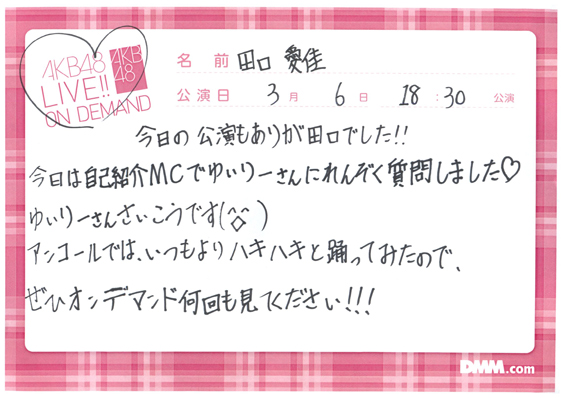 AKB48
LIVE!!
ON DEMAND
AKB
48
名前 田口 愛佳
公演日 3月 6日 18:30 公演
今日の公演もありが田口でした!!
今日は自己紹介MCでゆいりーさんにれんぞく質問しました♡
ゆいりーさんさいこうです(^◇^)
アンコールでは、いつもよりハキハキと踊ってみたので、
ぜひオンデマンド何回も見てください!!!
DMM.com